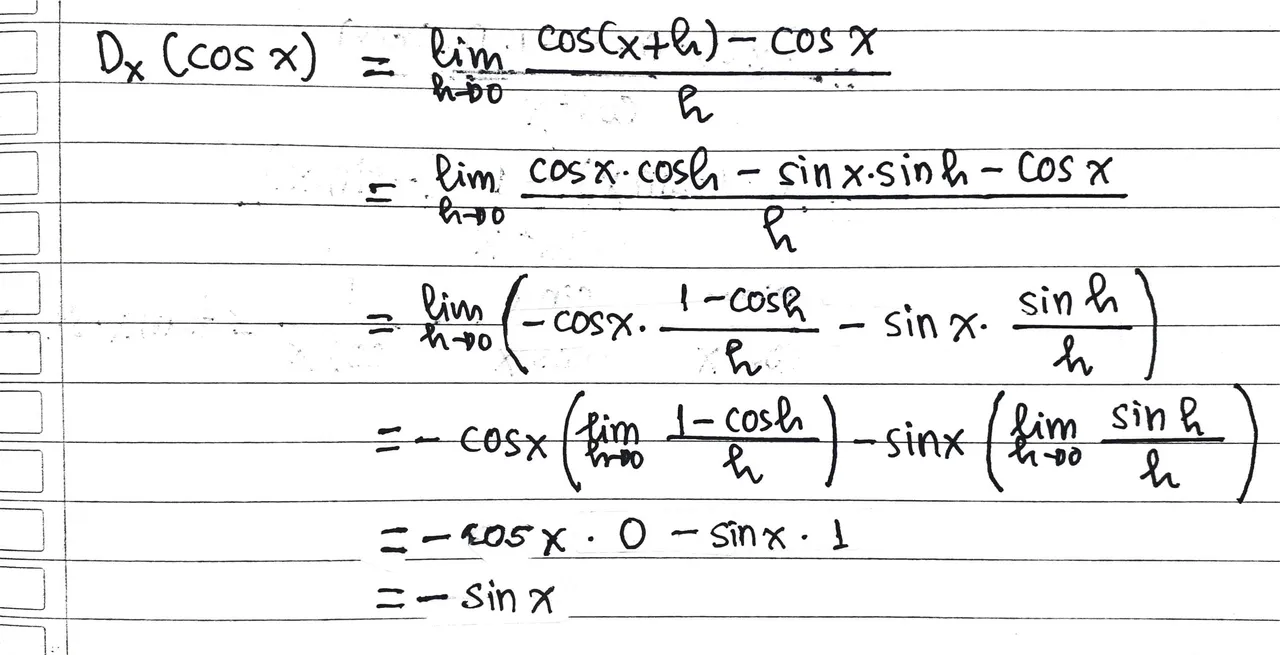 Dx (cos x) = lim h→0 (cos(x+h) − cos x) / h
= lim h→0 (cos x · cos h − sin x · sin h − cos x) / h
= lim h→0 (−cos x · (1 − cos h) / h − sin x · (sin h) / h)
= − cos x (lim h→0 (1 − cos h) / h) − sin x (lim h→0 (sin h) / h)
= − cos x · 0 − sin x · 1
= − sin x